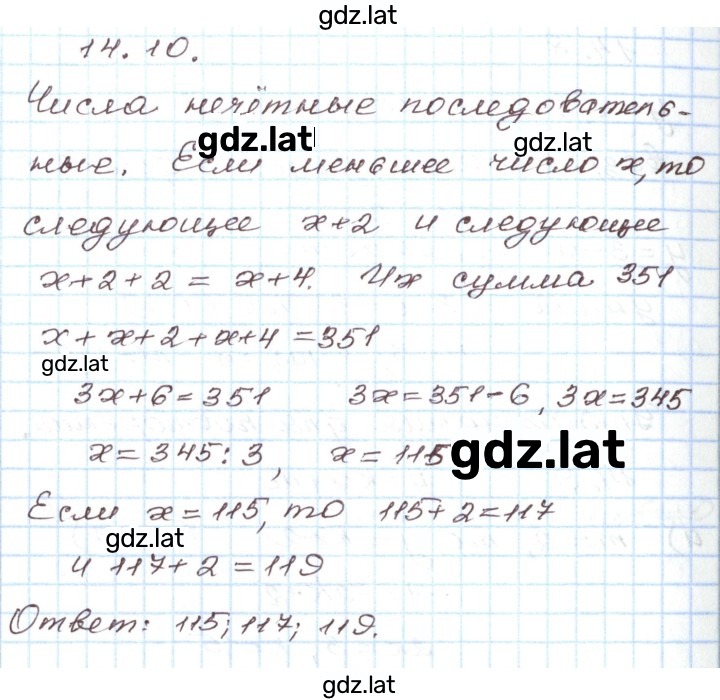 gdz.lat
14.10.
Числа нечётные последователь-
gdz.lat
gdz.lat
ные. Если меньшее число x, то
следующее x+2 и следующее
x+2+2 = x+4. Их сумма 351
x + x+2 + x+4 = 351
gdz.lat
3x+6=351 3x=351-6, 3x=345
x = 345:3, x = 115
gdz.lat
Если x=115, то 115+2=117
gdz.lat
и 117+2=119
Ответ: 115; 117; 119.
gdz.lat